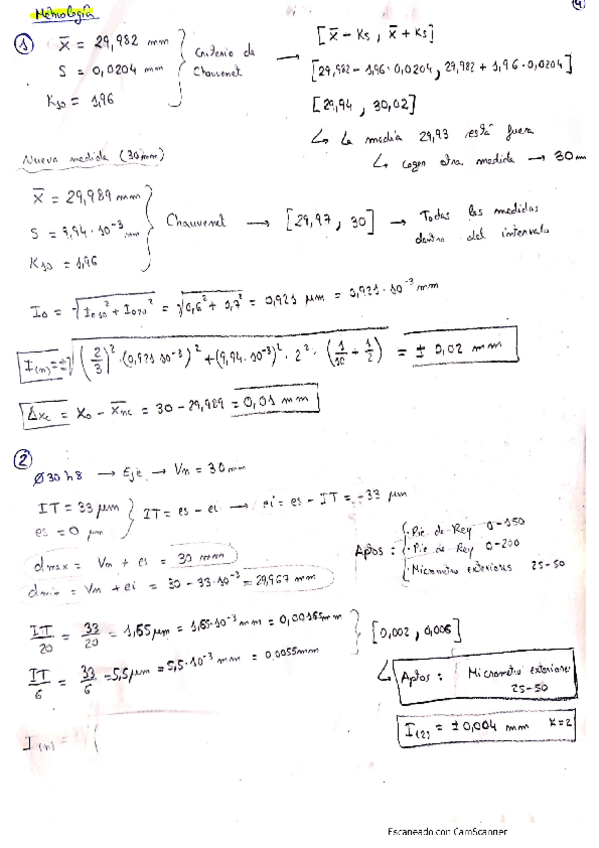 Metrología
4
1
x̄ = 29,982 mm
S = 0,0204 mm
K10 = 1,96
Criterio de Chauvenet → [x̄ - Ks , x̄ + Ks]
[29,982 - 1,96·0,0204, 29,982 + 1,96·0,0204]
[29,94 , 30,02]
↳ la media 29,93 está fuera
↳ coger otra medida → 30 mm
Nueva medida (30mm)
x̄ = 29,989 mm
S = 9,94·10⁻³ mm
K10 = 1,96
Chauvenet → [29,97 , 30] → Todas las medidas dentro del intervalo
I0 = √(I010² + I020²) = √(0,6² + 0,7²) = 0,921 μm = 0,921·10⁻³ mm
I(n) = ±√((2/3)²·(0,921·10⁻³)² + (9,94·10⁻³)²·2²·(1/10 + 1/2)) = ± 0,02 mm
Δxc = X0 - x̄nc = 30 - 29,989 = 0,01 mm
2
Ø30 h8 → Eje → Vn = 30 mm
IT = 33 μm
es = 0 μm
IT = es - ei → ei = es - IT = -33 μm
dmax = Vn + es = 30 mm
dmin = Vn + ei = 30 - 33·10⁻³ = 29,967 mm
Aptos :
· Pie de Rey 0-150
· Pie de Rey 0-200
· Micrometro exteriores 25-50
IT/20 = 33/20 = 1,65 μm = 1,65·10⁻³ mm = 0,00165 mm
IT/6 = 33/6 = 5,5 μm = 5,5·10⁻³ mm = 0,0055 mm
[0,002 , 0,006]
↳ Aptos : Micrometro exteriores
25-50
I(2) = ± 0,004 mm K=2
I(n) =
Escaneado con CamScanner